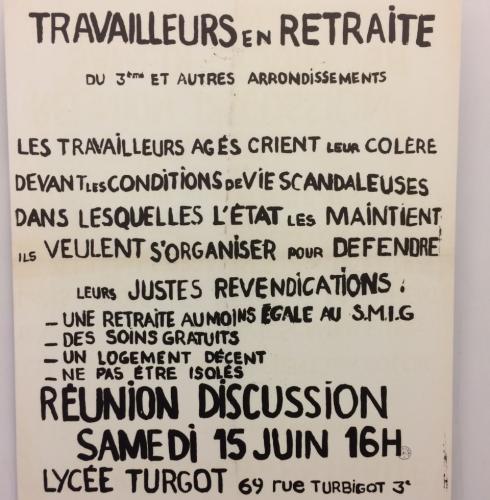 TRAVAILLEURS EN RETRAITE
DU 3ème ET AUTRES ARRONDISSEMENTS
LES TRAVAILLEURS AGÉS CRIENT LEUR COLÈRE
DEVANT LES CONDITIONS DE VIE SCANDALEUSES
DANS LESQUELLES L'ÉTAT LES MAINTIENT
ILS VEULENT S'ORGANISER POUR DEFENDRE
LEURS JUSTES REVENDICATIONS :
_ UNE RETRAITE AU MOINS ÉGALE AU S.M.I.G
_ DES SOINS GRATUITS
_ UN LOGEMENT DÉCENT
_ NE PAS ÊTRE ISOLÉS
RÉUNION DISCUSSION
SAMEDI 15 JUIN 16H
LYCÉE TURGOT 69 rue TURBIGOT 3e